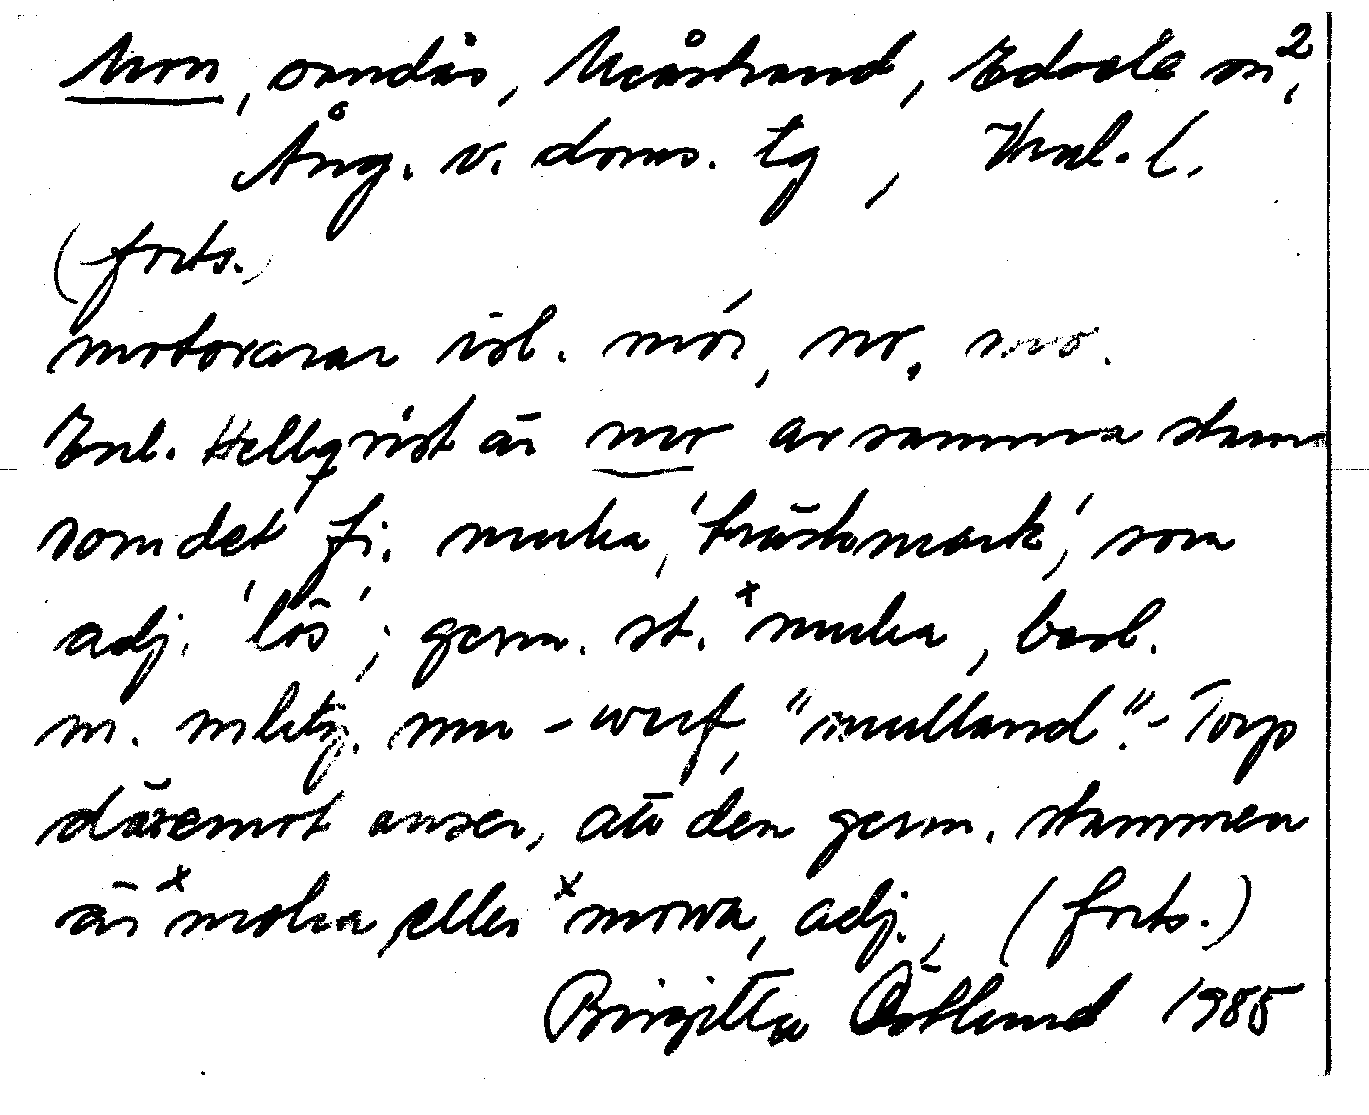 Mon, sandås, Måstrand, Edsele sn²,
Ång. v. doms. tg, Vnl. l.
(forts.)
motsvarar isl. mór, no. mo.
Enl. Hellqvist är mor av samma stam
som det fi. muha, 'träskmark', som
adj. 'lös'; germ. st. *muha, besl.
m. mlty. mu-werf, "mulland". - Torp
däremot anser, att den germ. stammen
är *moha eller *mowa, adj., (forts.)
Birgitta Östlund 1985